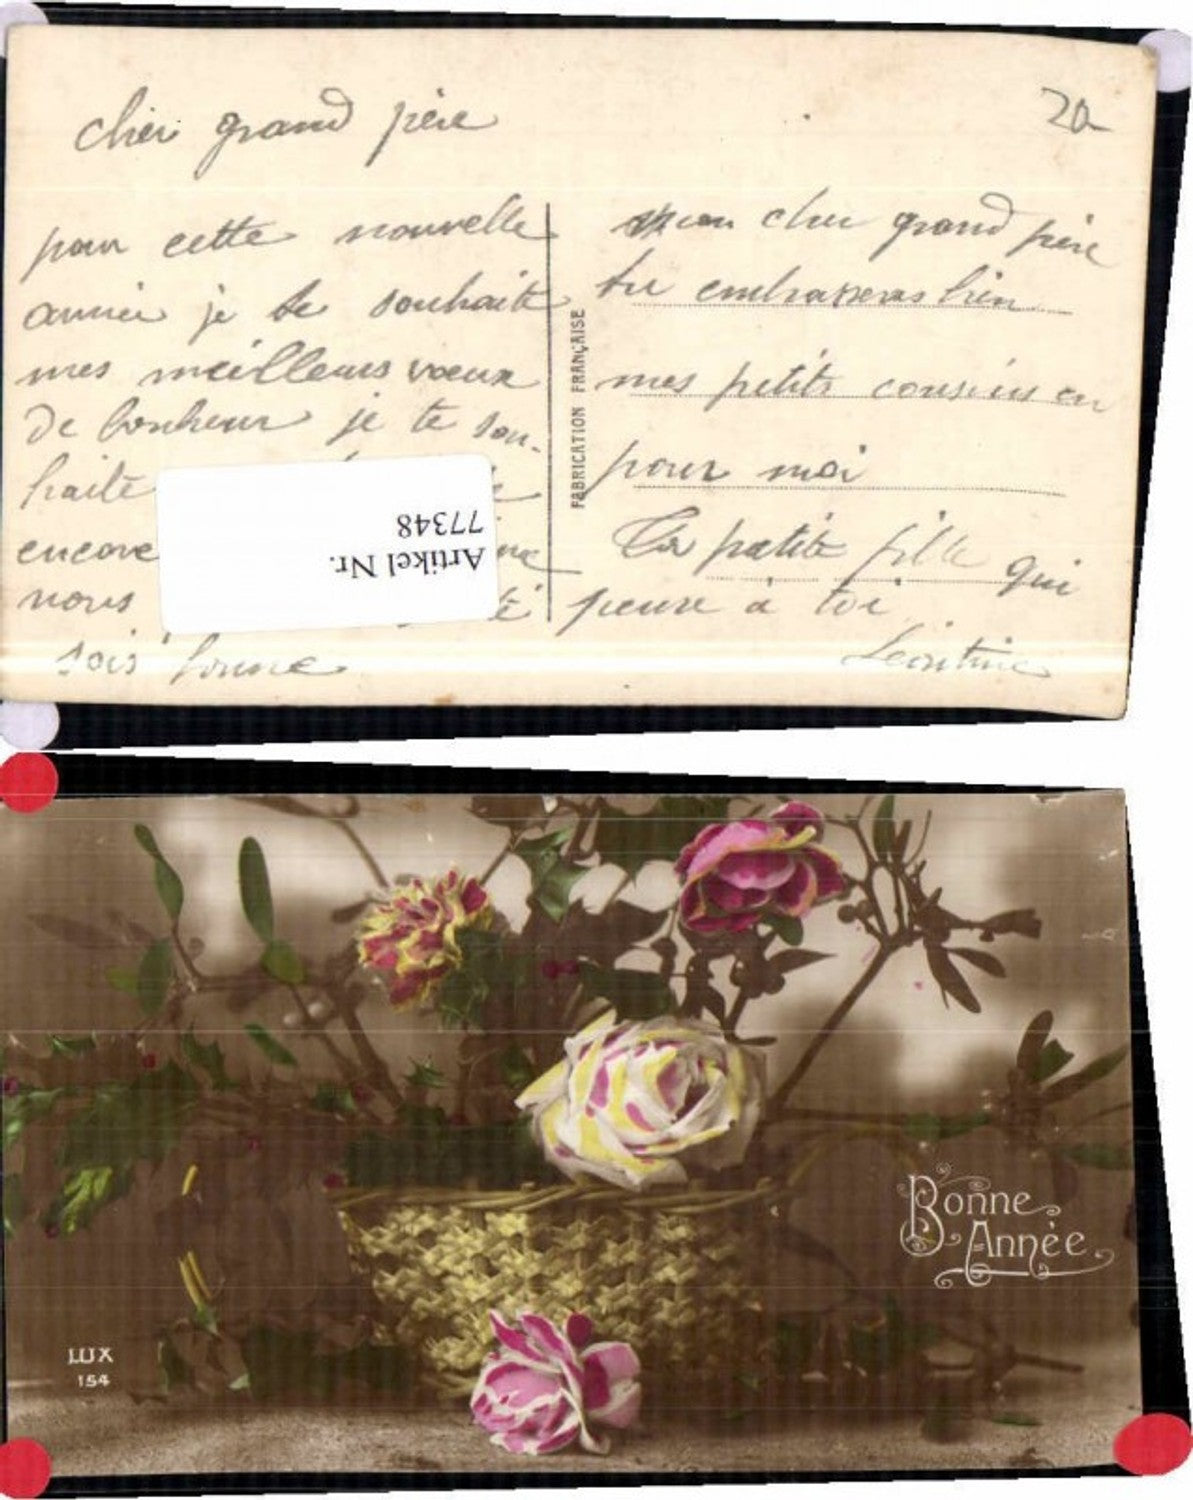 cher grand père
20
pour cette nouvelle
année je te souhaite
mes meilleurs voeux
de bonheur je te sou-
haite
encore
nous
sois bonne
Artikel Nr.
77348
FABRICATION FRANÇAISE
mon cher grand père
tu embrasseras bien
mes petits cousins en
pour moi
Ta petite fille qui
pense à toi
Léontine
Bonne
Année
LUX
154